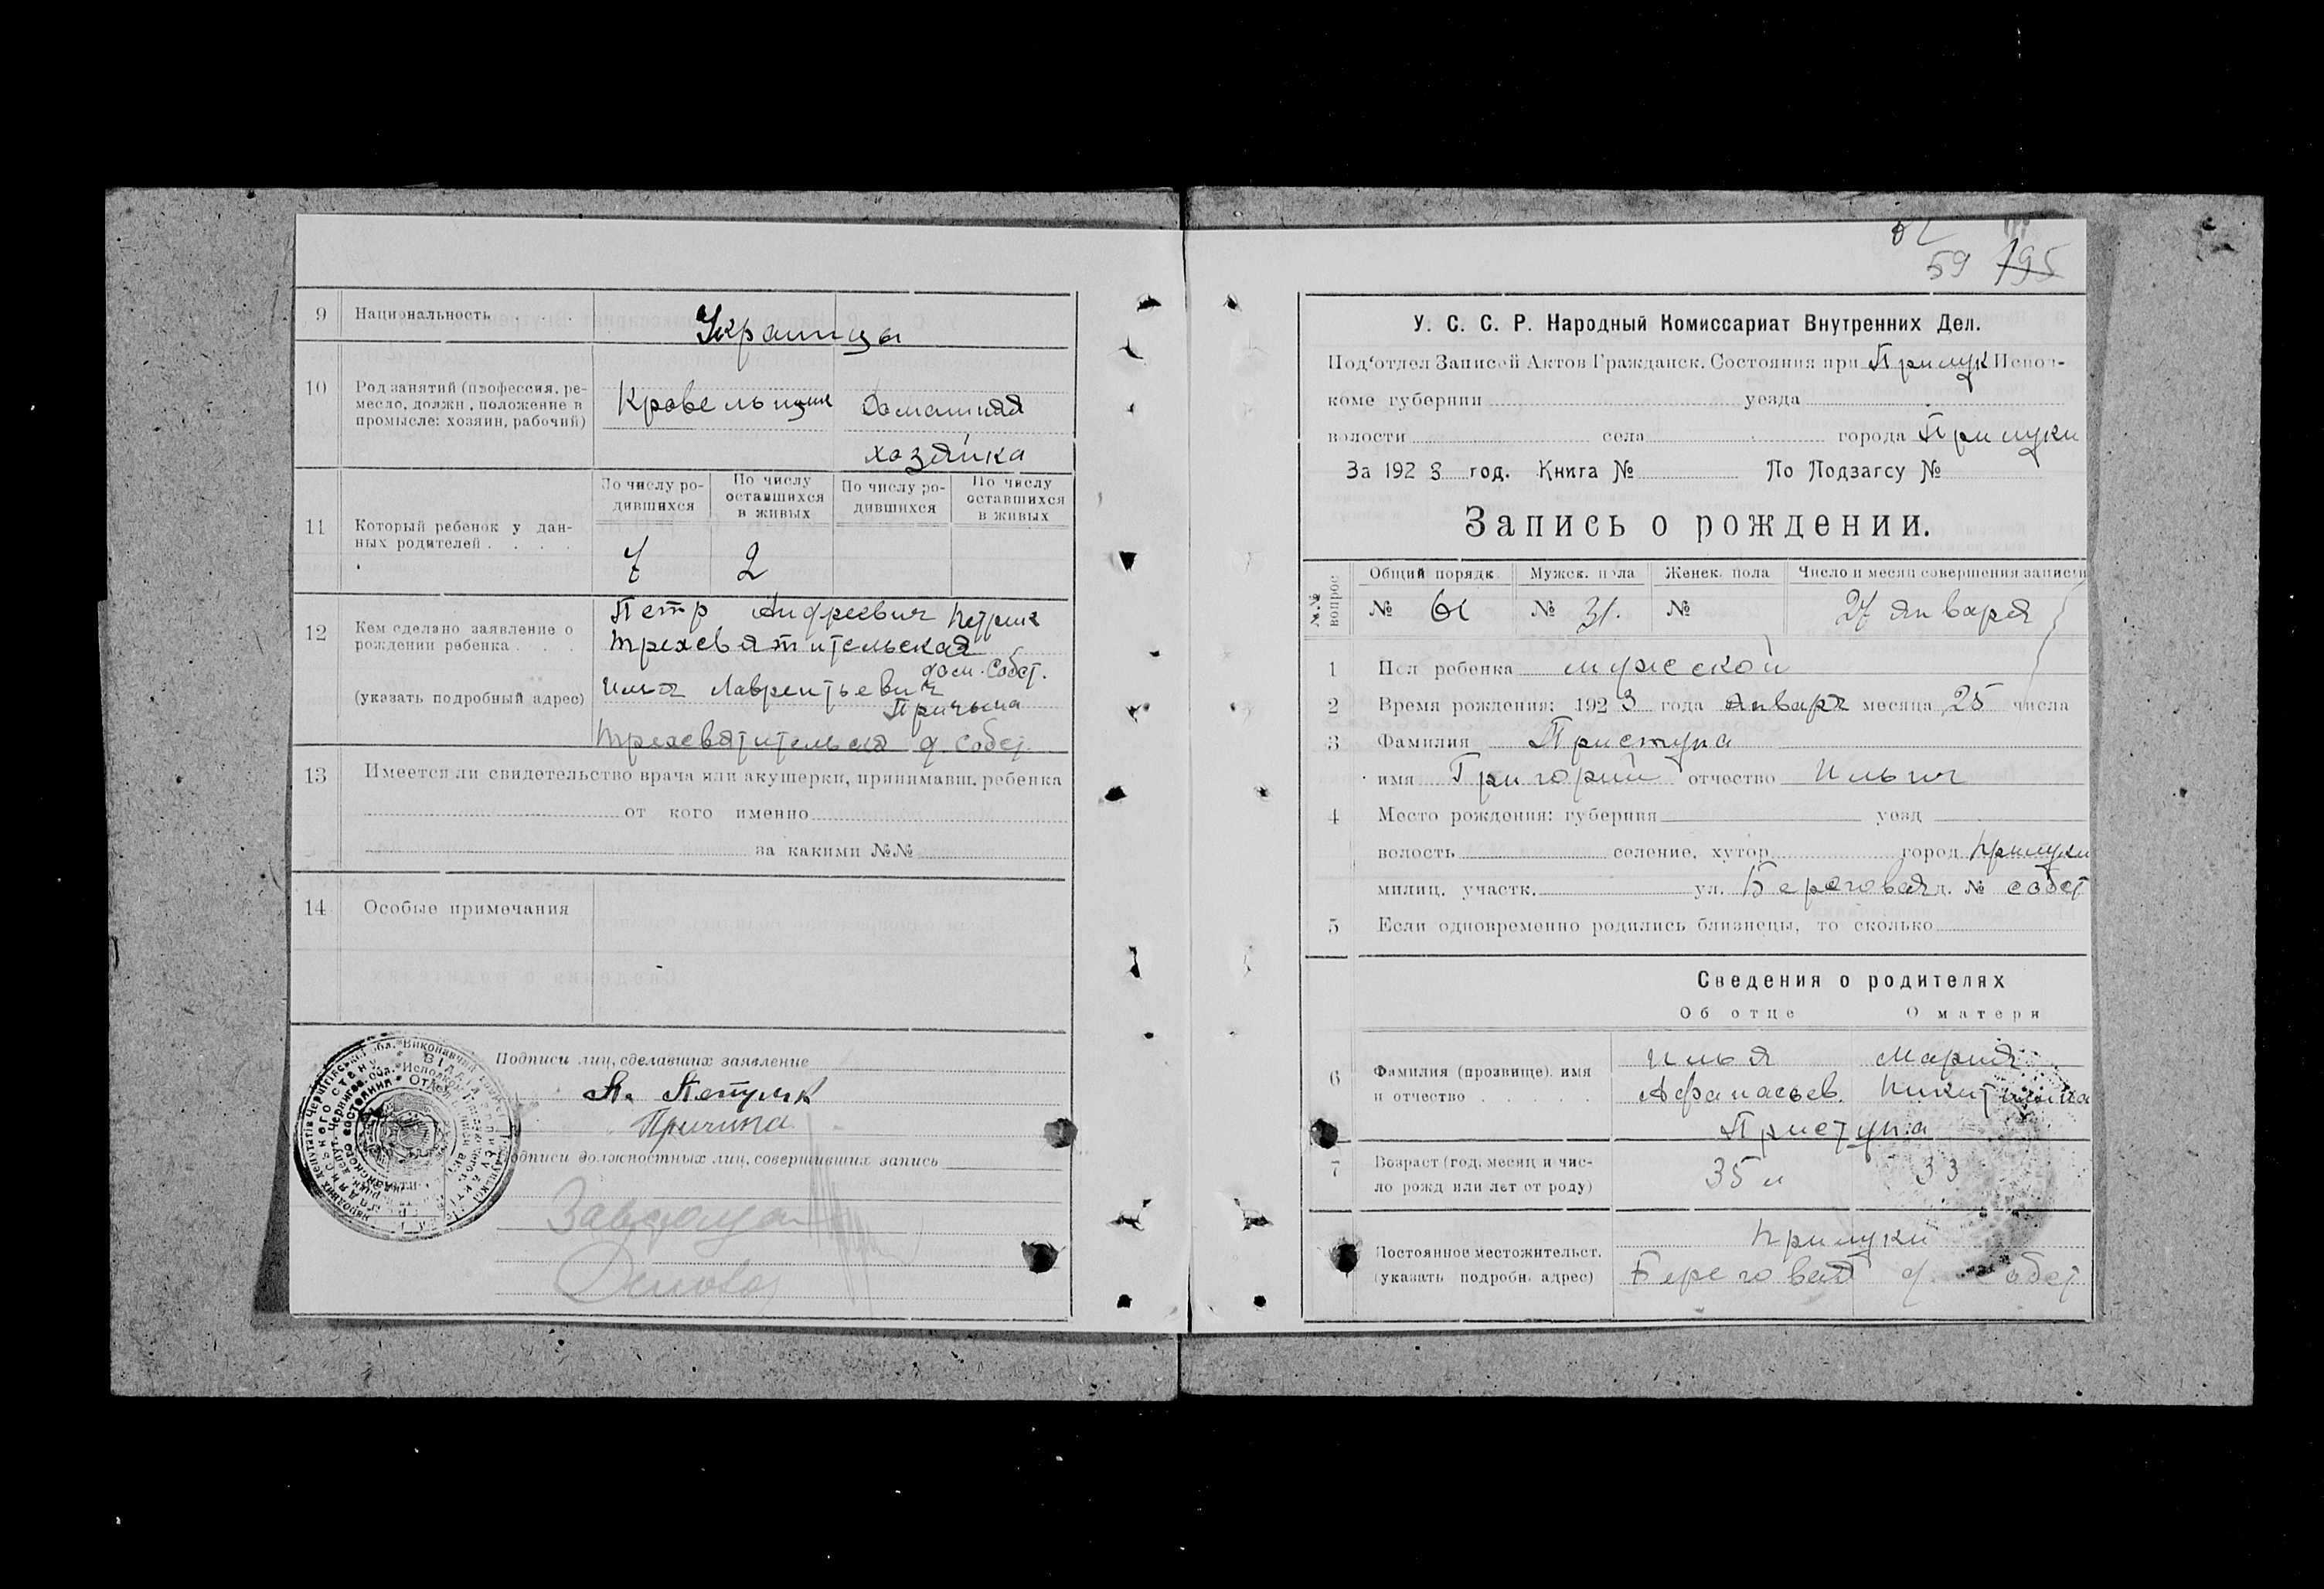 9 Национальность Украинцы
10 Род занятий (профессия, ре-
месло, должн., положение в
промысле: хозяин, рабочий)
Кровельщик Домашняя
хозяйка
11 Который ребенок у дан-
ных родителей . . . .
По числу ро-
дившихся
По числу
оставшихся
в живых
По числу ро-
дившихся
По числу
оставшихся
в живых
7 2
12 Кем сделано заявление о
рождении ребенка . . .
(указать подробный адрес)
Петр Андреевич Петрик
Трехсвятительская
дом. Собст.
Илья Лаврентьевич
Причина
Трехсвятительская д. Собст.
13 Имеется ли свидетельство врача или акушерки, принимавш. ребенка
от кого именно
за какими №№
14 Особые примечания
Подписи лиц, сделавших заявление
Причина
Подписи должностных лиц, совершивших запись
59 195
У. С. С. Р. Народный Комиссариат Внутренних Дел.
Под'отдел Записей Актов Гражданск. Состояния при Прилук Испол-
коме губернии уезда
волости села города Прилуки
За 1923 год. Книга № По Подзагсу №
Запись о рождении.
№№ вопрос
Общий порядк. Мужск. пола Женск. пола Число и месяц совершения записи
№ 61 № 31. № 27 января
1 Пол ребенка мужской
2 Время рождения: 1923 года января месяца 25 числа
3 Фамилия Приступа
имя Григорий отчество Ильич
4 Место рождения: губерния уезд
волость селение, хутор город Прилуки
милиц. участк. ул. Береговая д. № собст
5 Если одновременно родились близнецы, то сколько
Сведения о родителях
Об отце О матери
6 Фамилия (прозвище) имя
и отчество . . . . .
Илья Мария
Афанасьев. Никитична
Приступа
7 Возраст (год, месяц и чис-
ло рожд или лет от роду)
35 л 33
Постоянное местожительст.
(указать подробн. адрес)
Прилуки
Береговая д. собст